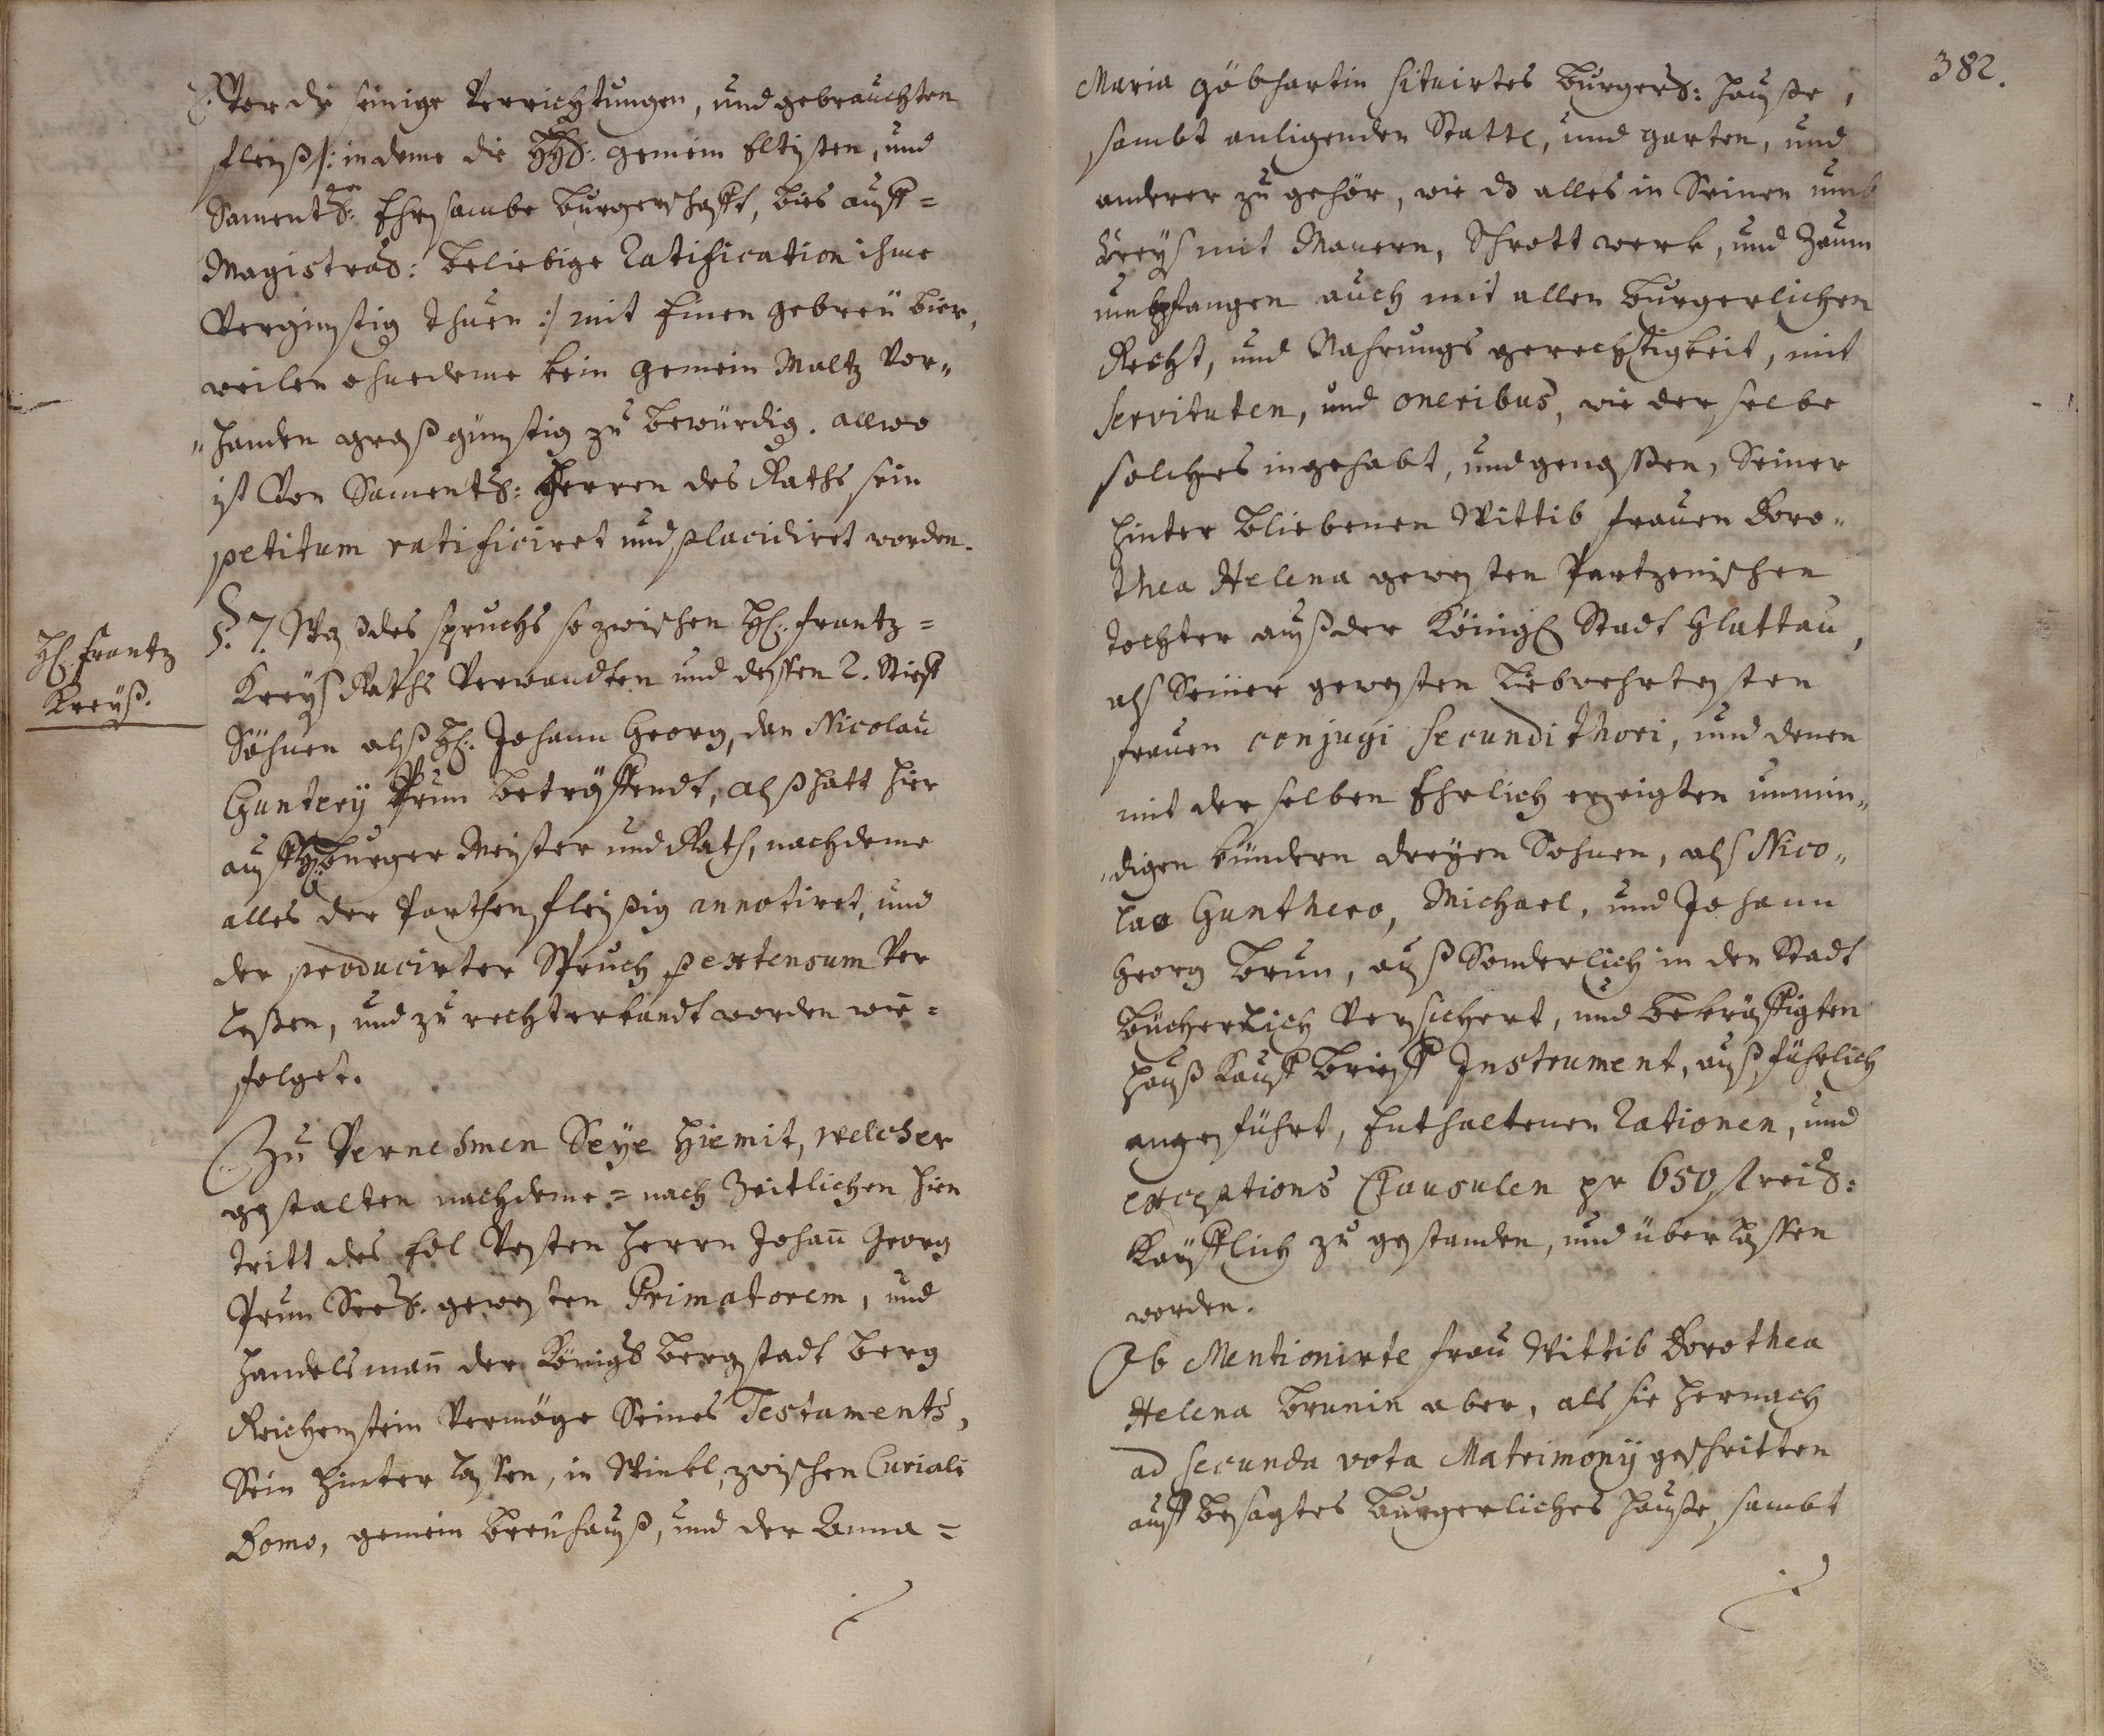 Vor die seinige Verrichtungen, und gebrauchten
fleiß /: in deme die HH: gemein Eltisten, und
Sament: Ehrsambe Burgerschafft, bies auff=
Magistrad: beliebige Ratification ihme
Vergünstig thuen :/ mit Einen gebreü bier,
weilen ohnedeme kein gemein Maltz Vor„
„handen groß günstig zu bewürdig. allwo
ist Von Sament: Herren des Raths sein
petitum ratificiret und placidiret worden.
§. 7. Weg des spruchs so zwischen H: Frantz=
Kreyß Raths Verwandten und dessen 2. Stieff
Söhnen alß H: Johann Georg, dan Nicolau
Guntery Prun betreffendt, alß hatt hier
auff H: Burger Meister und Rath, nachdeme
alles der Parthen fleißig annotiret, und
der producirter Spruch p extensum Ver
leßen, und zu recht erkandt worden wie=
folget.
Zu Vernehmen Seye hiemit, welcher
gestalten nachdeme = nach Zeitlichen hien
tritt des Edl Vesten Herrn Johañ Georg
Prun Seel: gewesten Primatorem, und
Handelsmañ der Königl Bergstadt Berg
Reichenstein Vermöge Seines Testaments,
Sein hinterlassen, in Winkl, zwischen Curiali
Domo, gemein Breuhauß, und der Anna=
H: Frantz
Kreyß.
382.
Maria Göbhartin situirtes Burgerl: Hauße,
sambt anligenden Statle, und garten, und
anderer zu gehör, wie dz alles in Seinen umb
Kreyß mit Mauern, Schrottwerk, und Zaum
umbfangen auch mit allen Burgerlichen
Recht, und Nahrungs gerechtigkeit, mit
servituten, und oneribus, wie der selbe
solches ingehabt, und genossen, Seiner
hinter bliebenen Wittib Frauen Doro„
thea Helena gewesten Partzenischen
tochter auß der Königl Stadt Glattau,
alß Seiner gewesten Liebwehrtesten
frauen conjugi secundi thori, und denen
mit der selben Ehrlich erzeigten unmin„
„digen kündern dreyen Sohnen, alß Nico„
lao Gunthero, Michael, und Johann
Georg Brun, auß Sonderlich in den Stadt
Bücherlich Versichert, und bekräfftigten
Hauß Kauff Brieff Instrument, auß führlich
angeführt, Enthaltenen Rationen, und
exceptions Clausulen pr 650 fl reid:
Kaufflich zu gestanden, und überlassen
worden.
Ob Mentionirte Frau Wittib Dorothea
Helena Brunin aber, als sie hernach
ad secunda vota Matrimony geschritten
auff besagtes Burgerliches Hauße, sambt